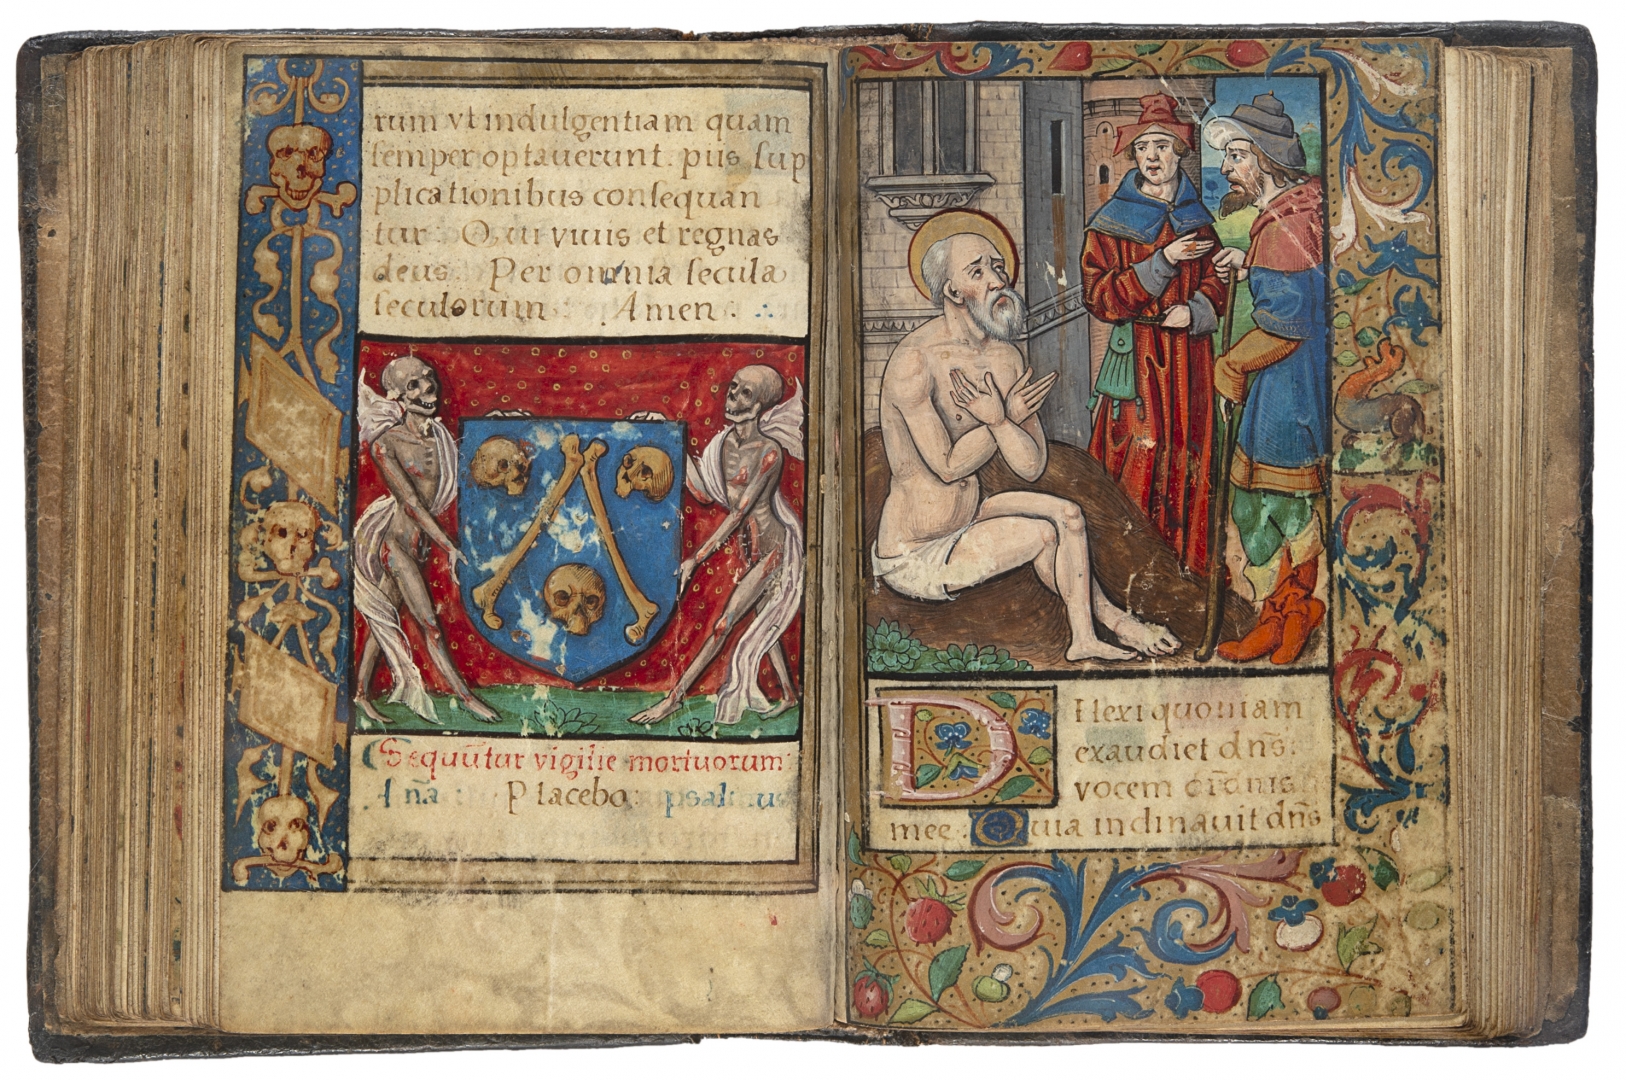 rum vt indulgentiam quam
semper optauerunt piis sup
plicationibus consequan
tur. Qui viuis et regnas
deus. Per omnia secula
seculorum Amen.
Sequūtur vigilie mortuorum
Añā Placebo. psalmus
Dilexi quoniam
exaudiet dn̄s.
vocem or̄onis
mee. Quia inclinauit dn̄s